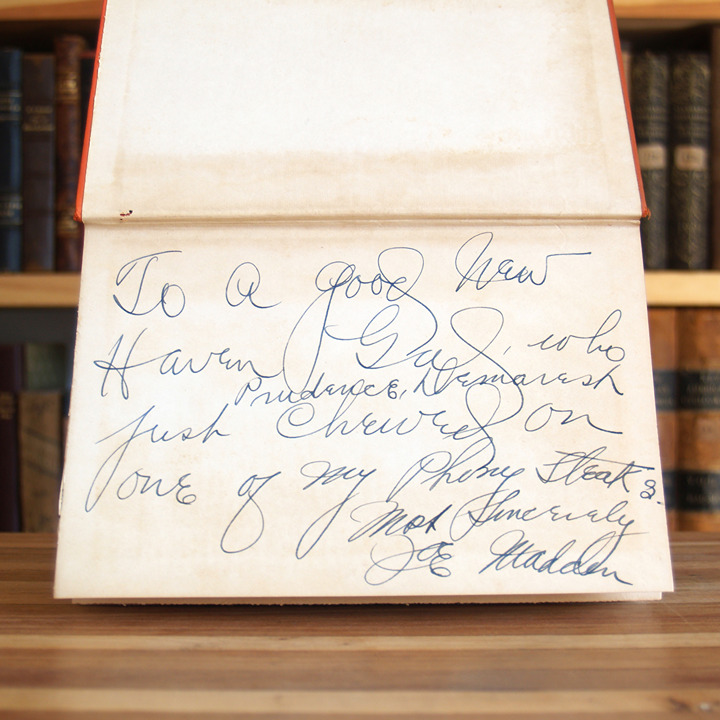 To a good New
Haven Gal, who
Prudence, Demaresh
just Chewed on
one of my Phony Steaks.
Most Sincerely
Joe Madden